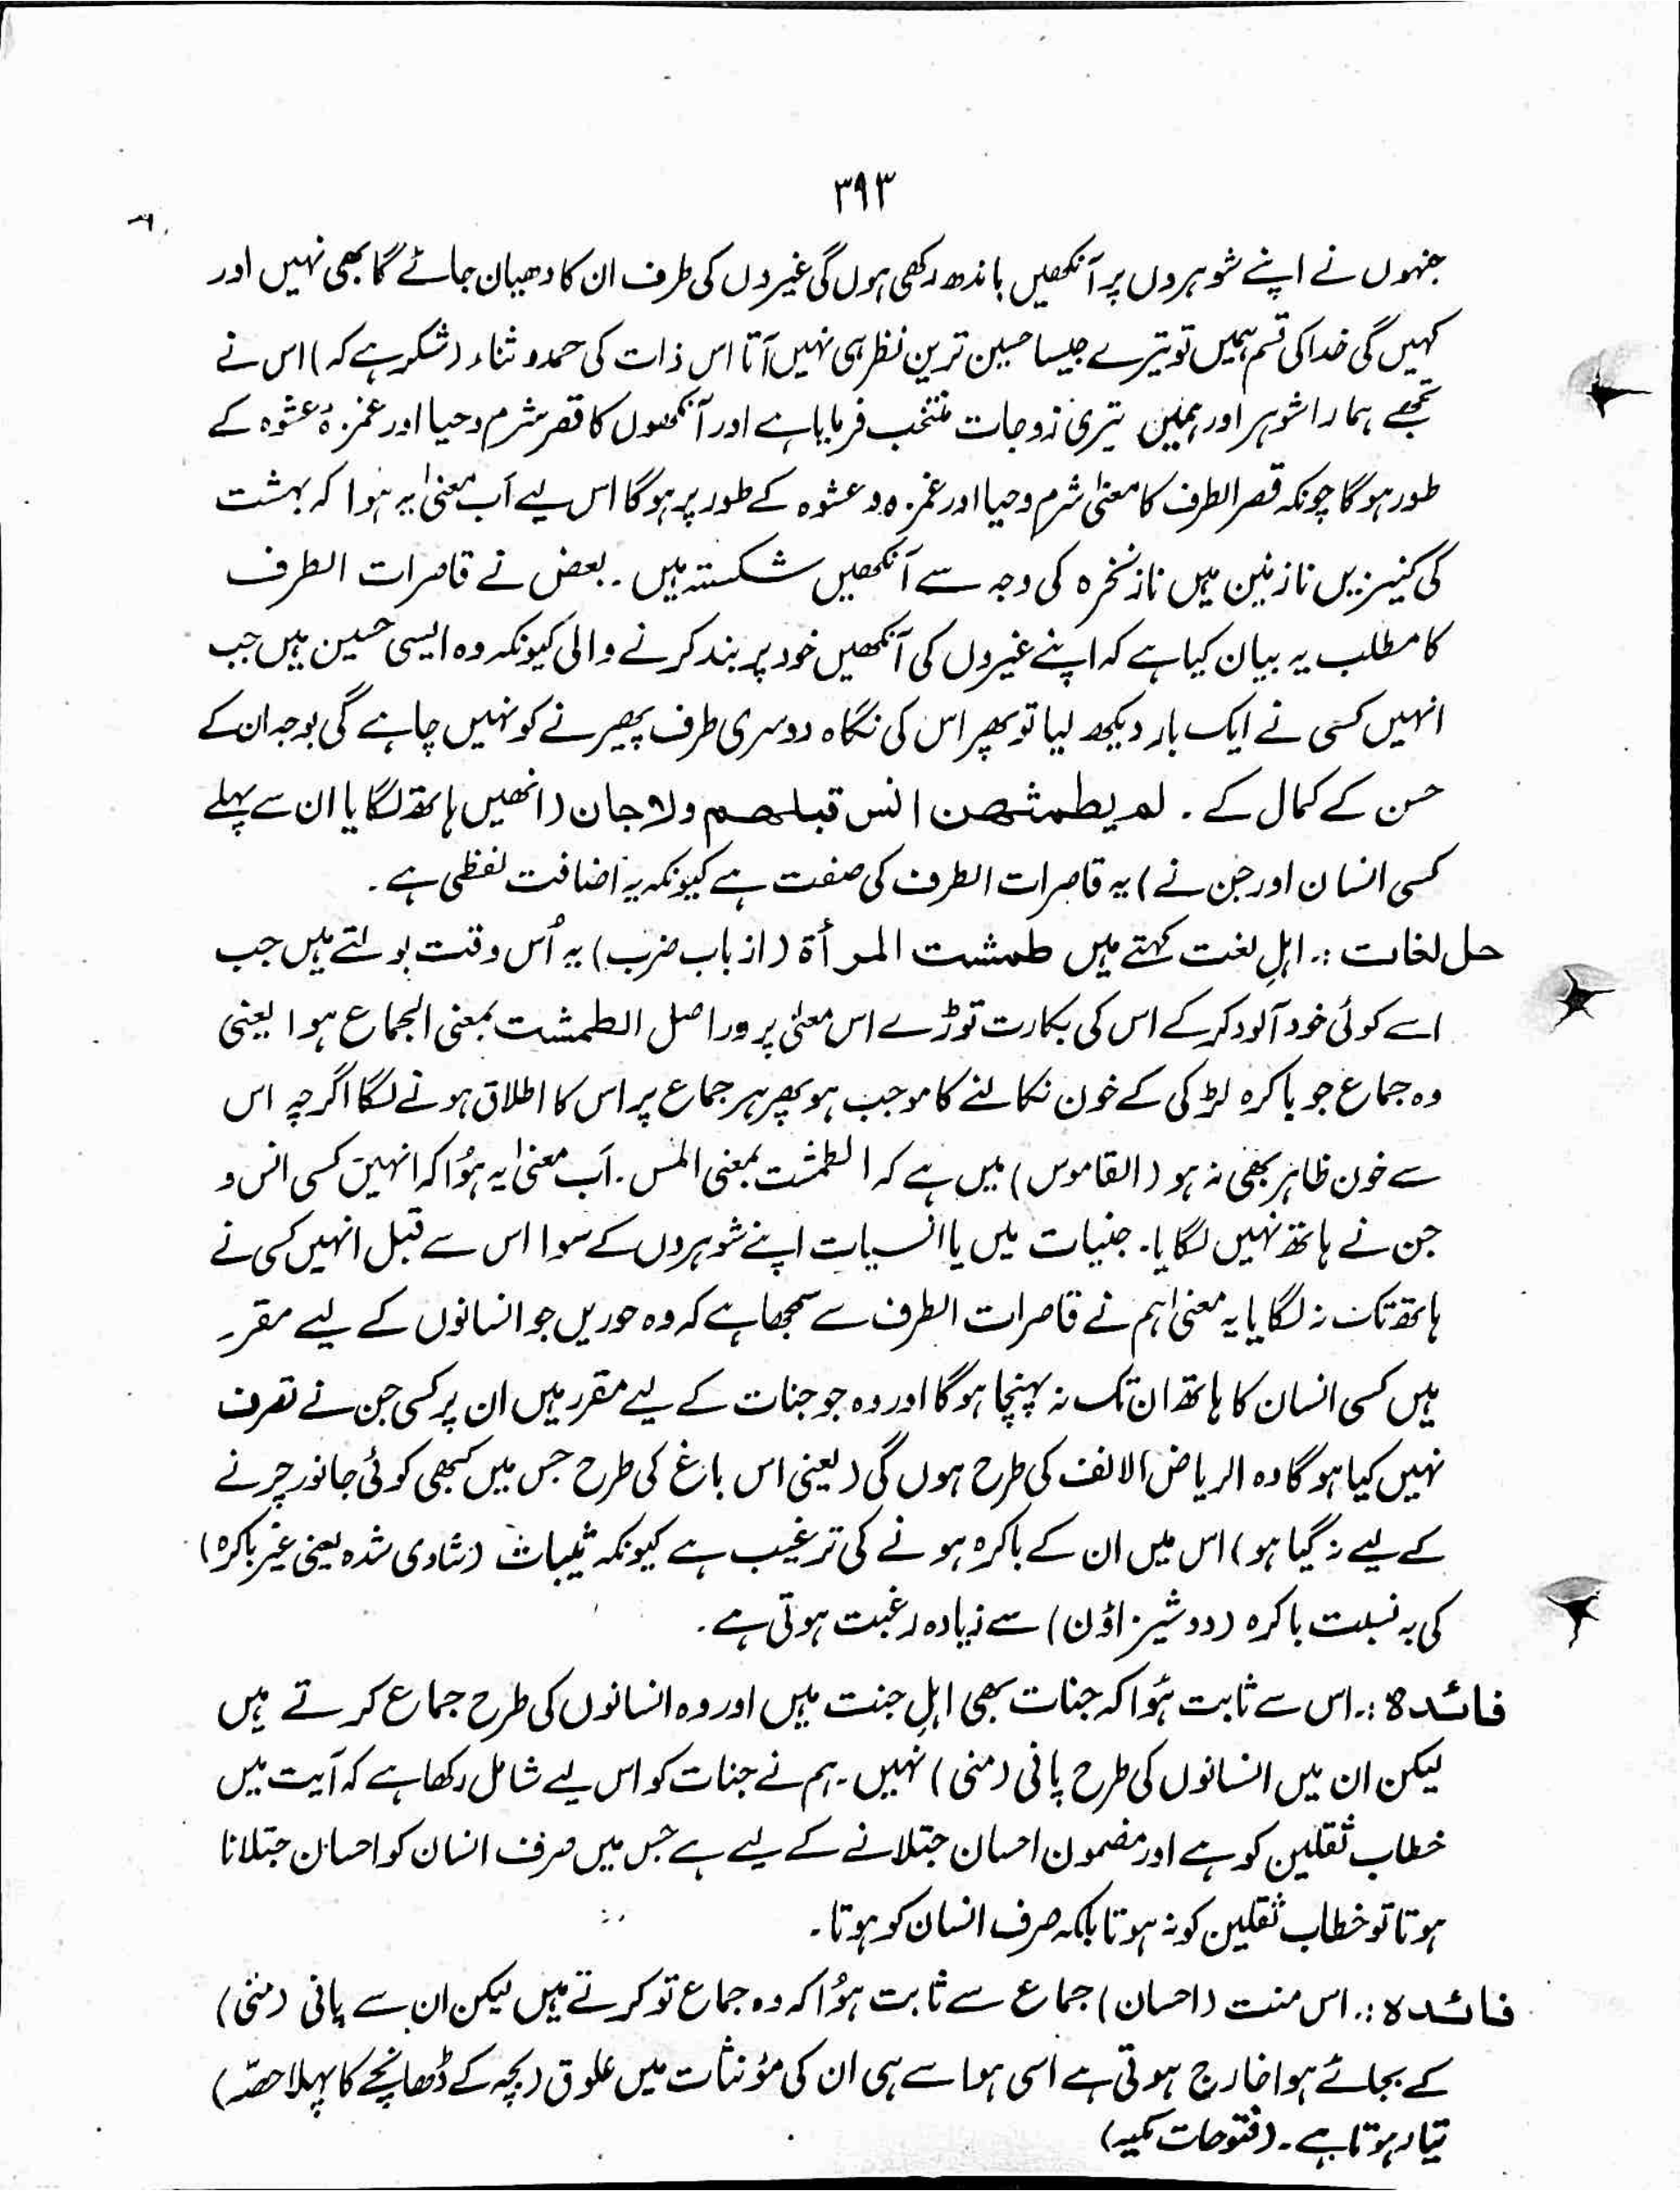 ۳۹۳
جنہوں نے اپنے شوہروں پر آنکھیں باندھ رکھی ہوں گی غیروں کی طرف ان کا دھیان جائے گا بھی نہیں اور
کہیں گی خدا کی قسم ہمیں تو تیرے جیسا حسین ترین نظر ہی نہیں آتا اس ذات کی حمد و ثناء (شکر ہے کہ) اس نے
تجھے ہمارا شوہر اور ہمیں تیری زوجات منتخب فرمایا ہے اور آنکھوں کا قصر شرم و حیا اور غمزہ عشوہ کے
طور ہو گا چونکہ قصر الطرف کا معنیٰ شرم و حیا اور غمزہ و عشوہ کے طور پر ہو گا اس لیے اب معنیٰ یہ ہوا کہ بہشت
کی کنیزیں نازنین میں ناز نخرہ کی وجہ سے آنکھیں شکستہ ہیں ۔ بعض نے قاصرات الطرف
کا مطلب یہ بیان کیا ہے کہ اپنے غیروں کی آنکھیں خود پر بند کرنے والی کیونکہ وہ ایسی حسین ہیں جب
انہیں کسی نے ایک بار دیکھ لیا تو پھر اس کی نگاہ دوسری طرف پھیرنے کو نہیں چاہے گی بوجہ ان کے
حسن کے کمال کے ۔ لم یطمثھن انس قبلھم ولا جان (انھیں ہاتھ لگایا ان سے پہلے
کسی انسان اور جن نے) یہ قاصرات الطرف کی صفت ہے کیونکہ یہ اضافت لفظی ہے ۔
حل لغات :۔ اہلِ لغت کہتے ہیں طمثت المرأۃ (از باب ضرب) یہ اُس وقت بولتے ہیں جب
اسے کوئی خود آلود کر کے اس کی بکارت توڑے اس معنیٰ پر دراصل الطمثت بمعنی الجماع ہوا یعنی
وہ جماع جو باکرہ لڑکی کے خون نکالنے کا موجب ہو پھر ہر جماع پر اس کا اطلاق ہونے لگا اگرچہ اس
سے خون ظاہر بھی نہ ہو (القاموس) میں ہے کہ الطمثت بمعنی المس ۔ اب معنیٰ یہ ہوُا کہ انہیں کسی انس و
جن نے ہاتھ نہیں لگایا ۔ جنیات میں یا انسیات اپنے شوہروں کے سوا اس سے قبل انہیں کسی نے
ہاتھ تک نہ لگایا یہ معنیٰ ہم نے قاصرات الطرف سے سمجھا ہے کہ وہ حوریں جو انسانوں کے لیے مقرر
ہیں کسی انسان کا ہاتھ ان تک نہ پہنچا ہو گا اور وہ جو جنات کے لیے مقرر ہیں ان پر کسی جن نے تصرف
نہیں کیا ہو گا وہ الریاض الانف کی طرح ہوں گی (یعنی اس باغ کی طرح جس میں کبھی کوئی جانور چرنے
کے لیے نہ گیا ہو) اس میں ان کے باکرہ ہونے کی ترغیب ہے کیونکہ ثیبات (شادی شدہ یعنی غیر باکرہ)
کی بہ نسبت باکرہ (دوشیزاؤں) سے زیادہ رغبت ہوتی ہے ۔
فائدہ :۔ اس سے ثابت ہوُا کہ جنات بھی اہلِ جنت ہیں اور وہ انسانوں کی طرح جماع کرتے ہیں
لیکن ان میں انسانوں کی طرح پانی (منی) نہیں ۔ ہم نے جنات کو اس لیے شامل رکھا ہے کہ آیت میں
خطاب ثقلین کو ہے اور مضمون احسان جتلانے کے لیے ہے جس میں صرف انسان کو احسان جتلانا
ہوتا تو خطاب ثقلین کو نہ ہوتا بلکہ صرف انسان کو ہوتا ۔
فائدہ :۔ اس منت (احسان) جماع سے ثابت ہوُا کہ وہ جماع تو کرتے ہیں لیکن ان سے پانی (منی)
کے بجائے ہوا خارج ہوتی ہے اسی ہوا سے ہی ان کی مؤنثات میں علوق (بچہ کے ڈھانچے کا پہلا حصّہ)
تیار ہوتا ہے ۔ (فتوحات مکیہ)